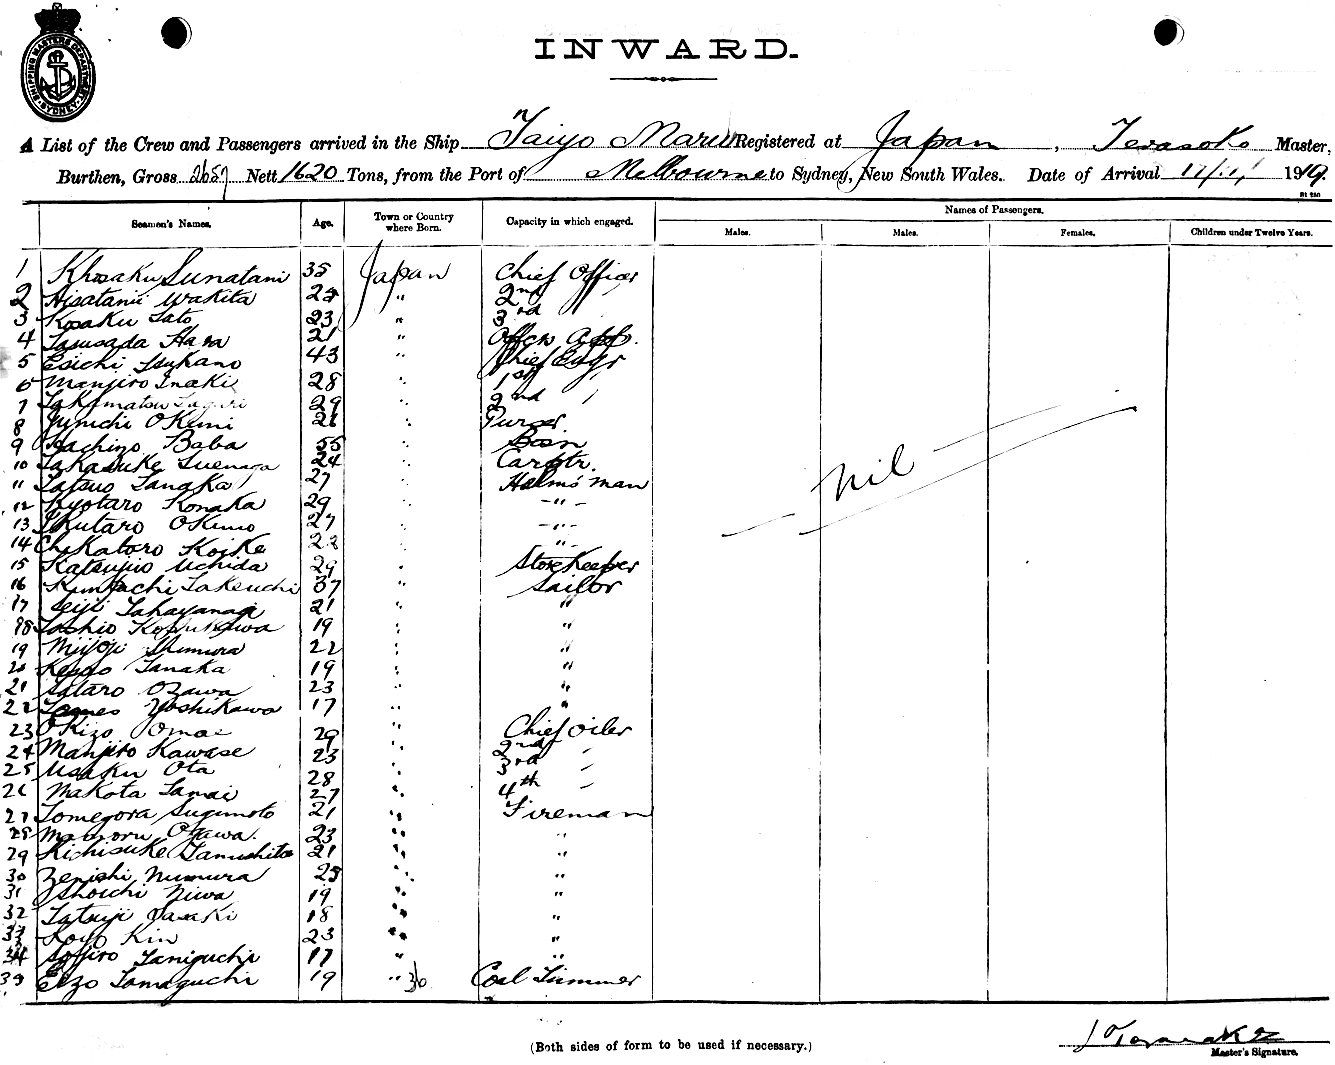 SHIPPING MASTERS DEPARTMENT SYDNEY
INWARD.
A List of the Crew and Passengers arrived in the Ship Taiyo Maru Registered at Japan, Terasoko Master,
Burthen, Gross 2657 Nett 1620 Tons, from the Port of Melbourne to Sydney, New South Wales. Date of Arrival 17/11/ 1919.
Seamen's Names. Age. Town or Country where Born. Capacity in which engaged. Names of Passengers.
Males. Males. Females. Children under Twelve Years.
1 Sunatani 35 Japan Chief Officer
2 Wakita " 2nd "
3 Kosaku Sato 23 " 3rd
4 Tamsada Hara 21 "
5 Eiichi Tsukano 43 " Chief Engr
6 Manjiro Inaki 28 " 1st "
7 Takamatsu 29 " 2nd "
8 Junichi Okumi " Purser
9 Hachizo Baba 55 " Bosn
10 Takasuke Suenaga 24 " Carptr.
11 Tatsuo Tanaka 27 " Helmsman
12 Kyotaro Konaka 29 " -"-
13 Ikutaro Okuno 27 " -"-
14 Chikataro Koike " "
15 Katsujiro Uchida 29 " Storekeeper
16 Takeuchi 37 " Sailor
17 Seiji Takayanagi 21 " "
18 Toshio 19 " "
19 Shimura 22 " "
20 Tanaka 19 " "
21 Sataro Ozawa 23 " "
22 Yoshikawa 17 " "
23 Okizo Omae 29 " Chief Oiler
24 Manjiro Kawase 23 " 2nd "
25 Usaku Ota 28 " 3rd "
26 Makota Tamai 27 " 4th "
27 Sugimoto 21 " Fireman
28 Mamoru Ogawa. 23 " "
29 Kichisuke Tamushita 21 " "
30 Zenishi Numura 25 " "
31 Shoichi Niwa 19 " "
32 Tatsuji Sasaki 18 " "
33 Koyo Kin 23 " "
34 Taniguchi 17 " "
35 Eizo Tamaguchi 19 " 36 Coal Trimmer
Nil
(Both sides of form to be used if necessary.)
Master's Signature.